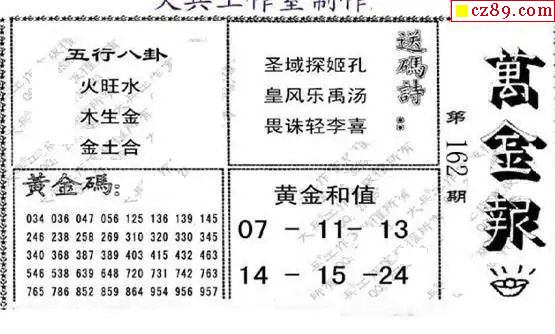 天兵工作室制作
cz89.com
五行八卦
火旺水
木生金
金土合
送碼詩:
圣域探姬孔
皇风乐禹汤
畏诛轻李喜
萬金報
第162期
黃金碼:
034 036 047 056 125 136 139 145
246 238 258 269 310 320 330 345
340 368 387 389 403 415 432 463
546 538 639 648 720 731 742 763
765 786 852 869 854 954 956 957
黄金和值
07 - 11- 13
14 - 15 -24